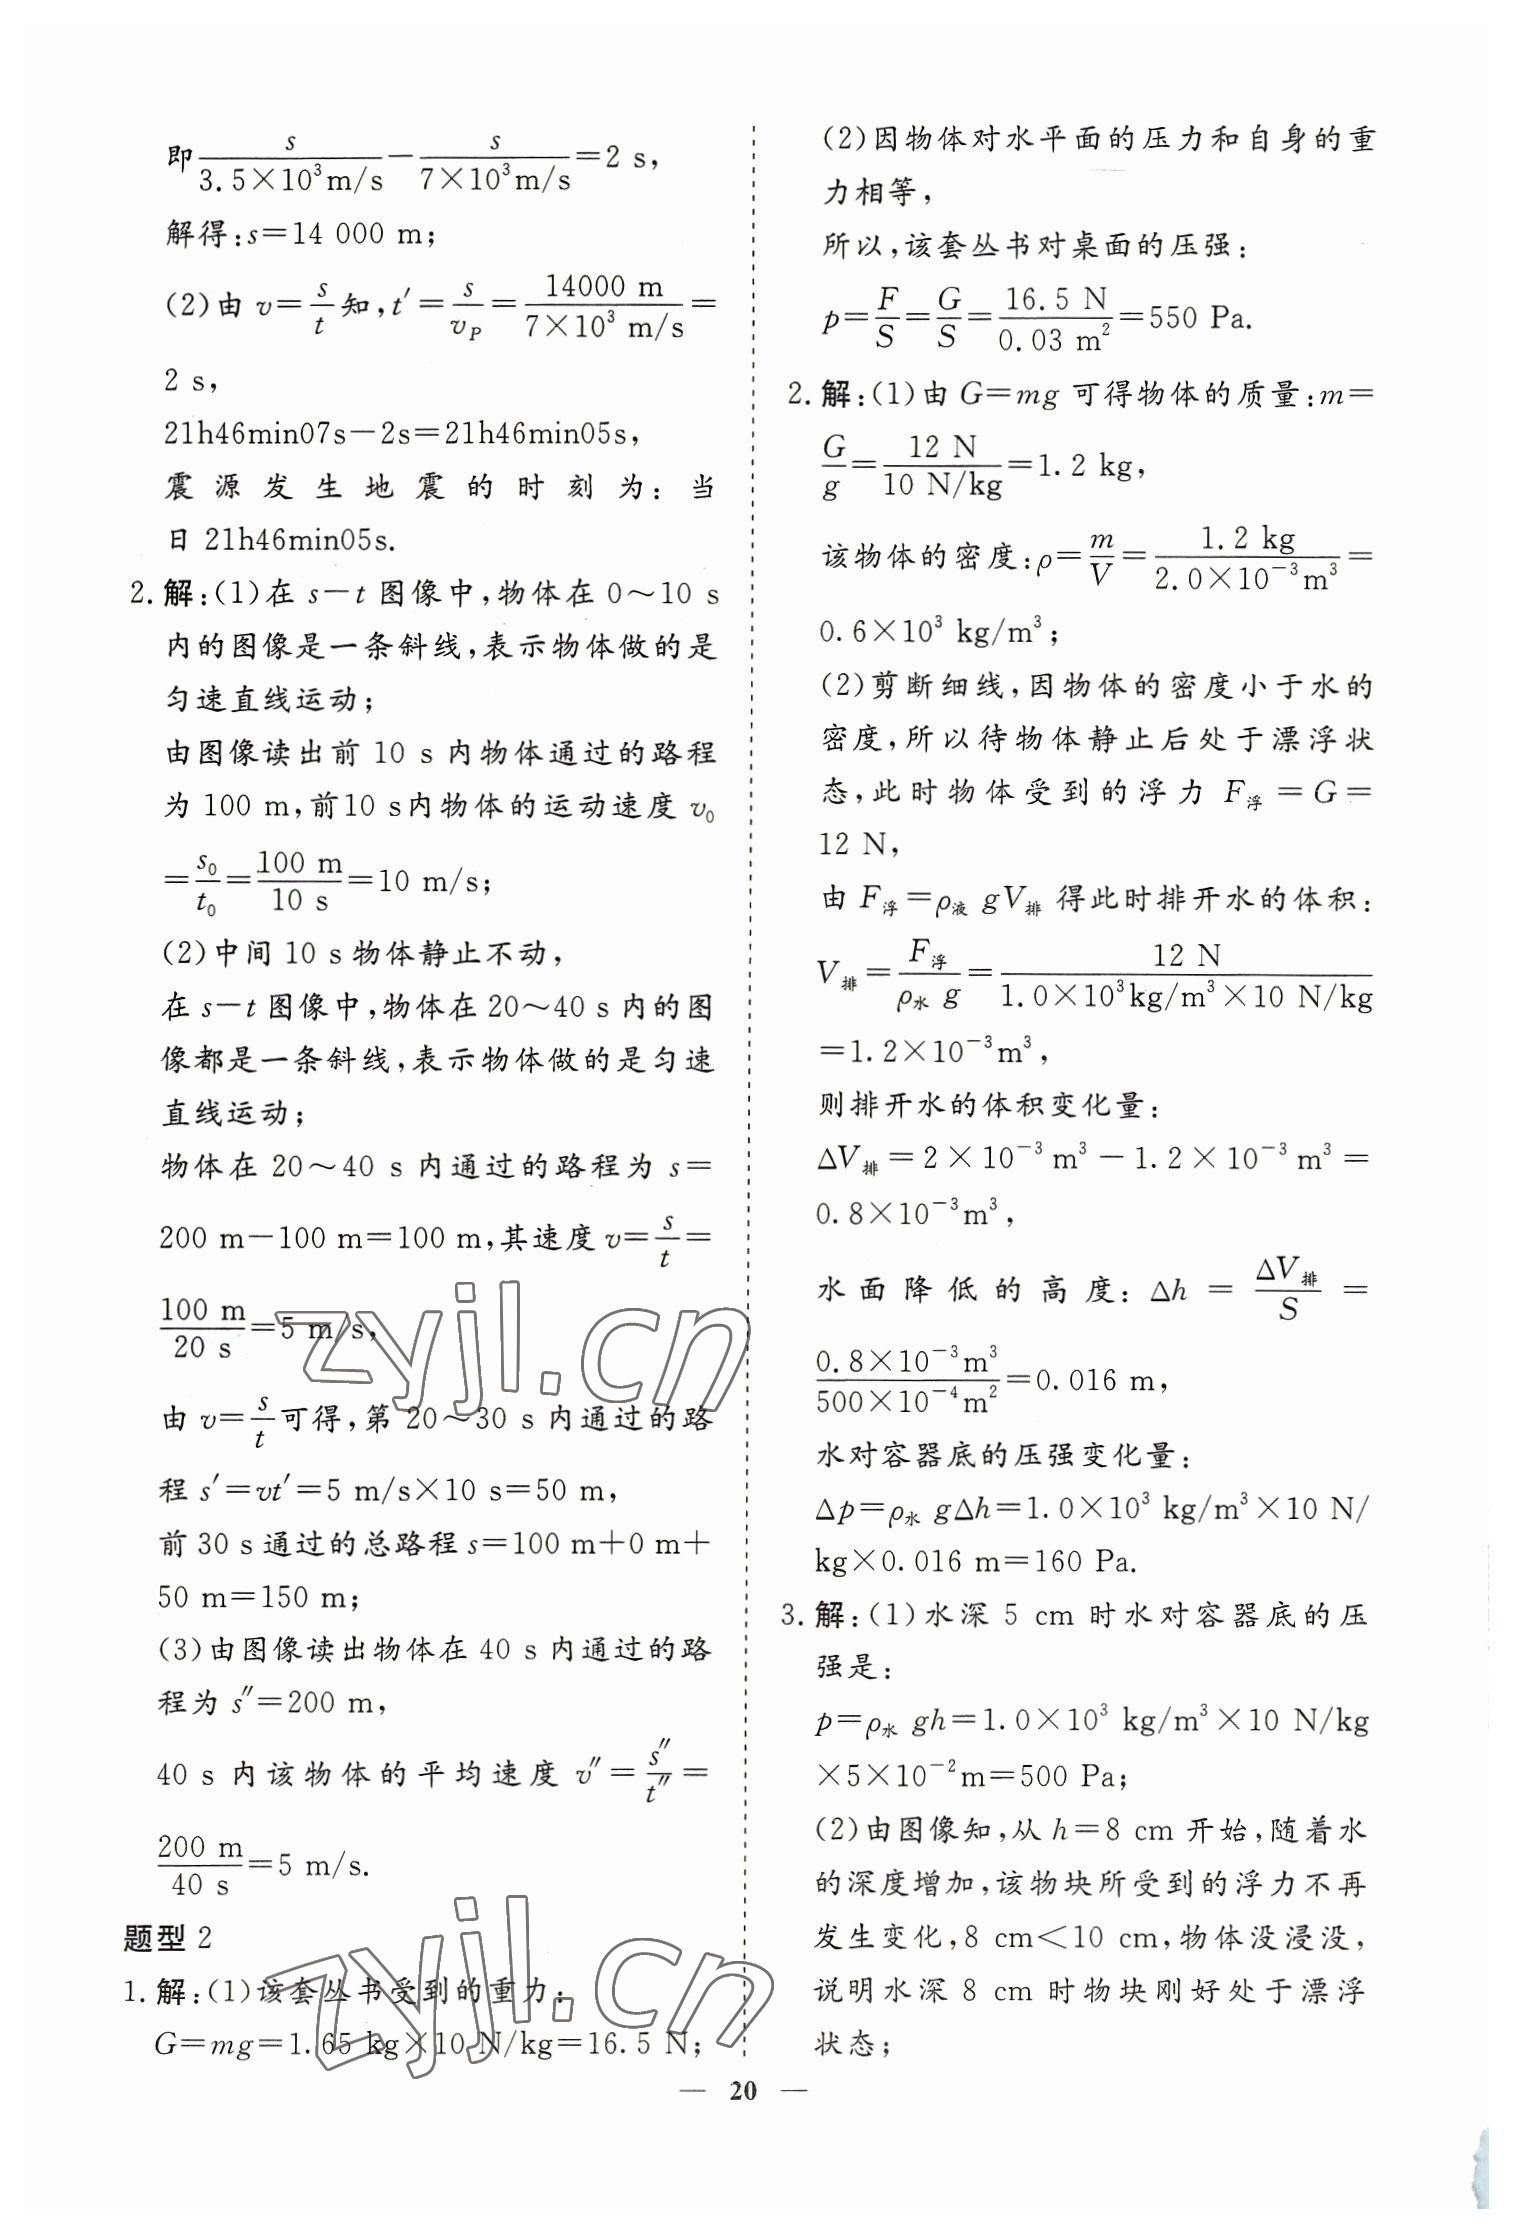 即 s/(3.5×10³m/s) − s/(7×10³m/s) =2 s,
解得:s=14 000 m;
(2)由 v=s/t 知,t′=s/v_P=14000 m/(7×10³ m/s)=
2 s,
21h46min07s−2s=21h46min05s,
震源发生地震的时刻为:当
日 21h46min05s.
2. 解:(1)在 s−t 图像中,物体在 0～10 s
内的图像是一条斜线,表示物体做的是
匀速直线运动;
由图像读出前 10 s 内物体通过的路程
为 100 m,前10 s内物体的运动速度 v₀
=s₀/t₀=100 m/10 s=10 m/s;
(2)中间 10 s 物体静止不动,
在 s−t 图像中,物体在 20～40 s 内的图
像都是一条斜线,表示物体做的是匀速
直线运动;
物体在 20～40 s 内通过的路程为 s=
200 m−100 m=100 m,其速度 v=s/t=
100 m/20 s=5 m/s,
由 v=s/t 可得,第 20～30 s 内通过的路
程 s′=vt′=5 m/s×10 s=50 m,
前 30 s 通过的总路程 s=100 m+0 m+
50 m=150 m;
(3)由图像读出物体在 40 s 内通过的路
程为 s″=200 m,
40 s 内该物体的平均速度 v″=s″/t″=
200 m/40 s=5 m/s.
题型 2
1. 解:(1)该套丛书受到的重力:
G=mg=1.65 kg×10 N/kg=16.5 N;
(2)因物体对水平面的压力和自身的重
力相等,
所以,该套丛书对桌面的压强:
p=F/S=G/S=16.5 N/0.03 m²=550 Pa.
2. 解:(1)由 G=mg 可得物体的质量:m=
G/g=12 N/(10 N/kg)=1.2 kg,
该物体的密度:ρ=m/V=1.2 kg/(2.0×10⁻³m³)=
0.6×10³ kg/m³;
(2)剪断细线,因物体的密度小于水的
密度,所以待物体静止后处于漂浮状
态,此时物体受到的浮力 F浮=G=
12 N,
由 F浮=ρ液 gV排 得此时排开水的体积:
V排=F浮/(ρ水 g)=12 N/(1.0×10³kg/m³×10 N/kg)
=1.2×10⁻³m³,
则排开水的体积变化量:
ΔV排=2×10⁻³ m³−1.2×10⁻³ m³=
0.8×10⁻³m³,
水面降低的高度:Δh=ΔV排/S=
0.8×10⁻³m³/(500×10⁻⁴m²)=0.016 m,
水对容器底的压强变化量:
Δp=ρ水 gΔh=1.0×10³ kg/m³×10 N/
kg×0.016 m=160 Pa.
3. 解:(1)水深 5 cm 时水对容器底的压
强是:
p=ρ水 gh=1.0×10³ kg/m³×10 N/kg
×5×10⁻²m=500 Pa;
(2)由图像知,从 h=8 cm 开始,随着水
的深度增加,该物块所受到的浮力不再
发生变化,8 cm<10 cm,物体没浸没,
说明水深 8 cm 时物块刚好处于漂浮
状态;
— 20 —
zyjl.cn
zyjl.cn